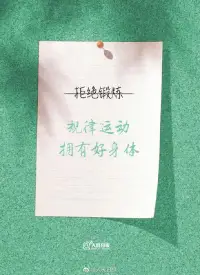 拒绝锻炼
规律运动
拥有好身体